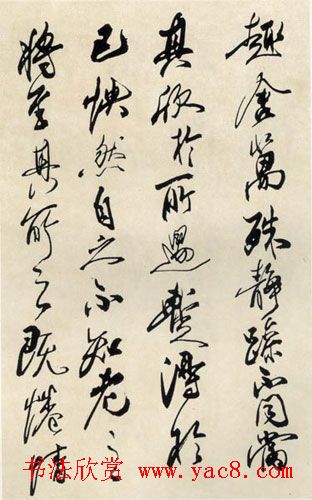 趣舍萬殊靜躁不同當
其欣於所遇暫得於
己怏然自足不知老之
將至其所之既惓情
书法欣赏 www.yac8.com